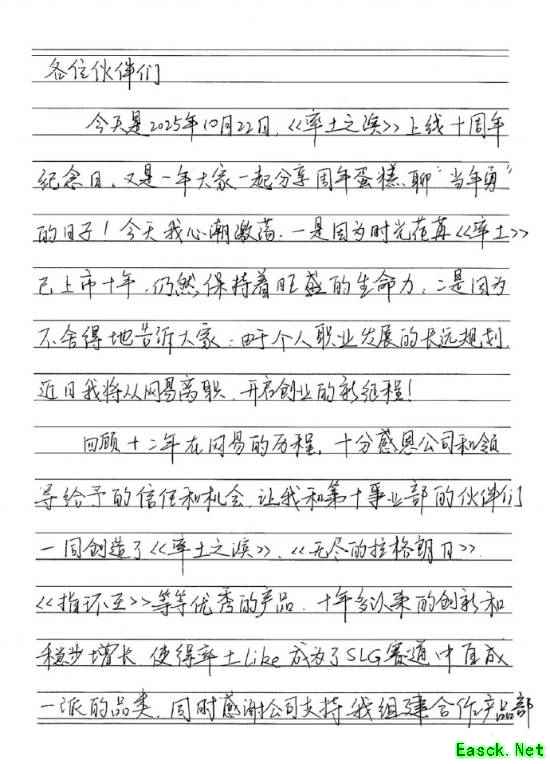 各位伙伴们
今天是2025年10月22日,《率土之滨》上线十周年
纪念日,又是一年大家一起分享周年蛋糕、聊"当年勇"
的日子!今天我心潮激荡,一是因为时光荏苒《率土》
已上市十年,仍然保持着旺盛的生命力;二是因为
不舍得地告诉大家:由于个人职业发展的长远规划,
近日我将从网易离职,开启创业的新征程!
回顾十二年在网易的历程,十分感恩公司和领
导给予的信任和机会,让我和第十事业部的伙伴们
一同创造了《率土之滨》、《无尽的拉格朗日》
《指环王》等等优秀的产品,十年多以来的创新和
稳步增长,使得率土Like成为了SLG赛道中自成
一派的品类,同时感谢公司支持我组建合作产品部
Easck.Net